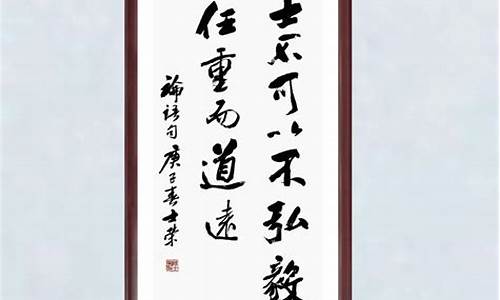 士不可以不弘毅
任重而道遠
論語句庚子春士荣